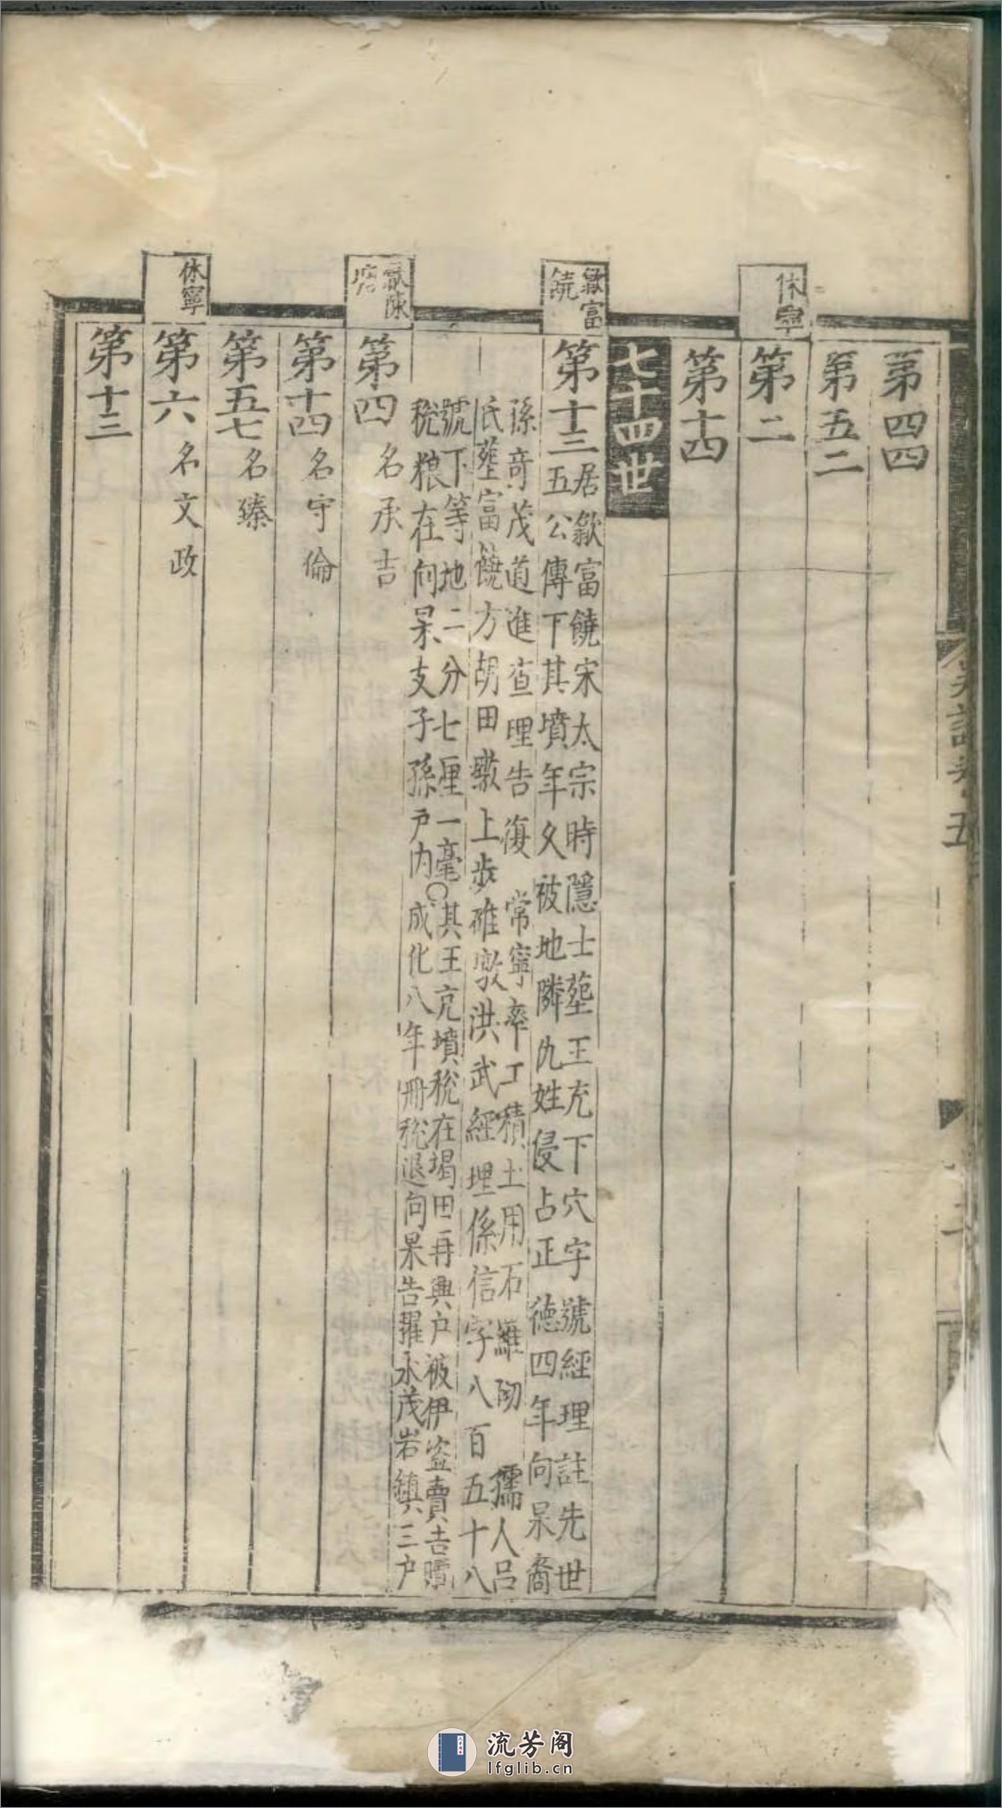 第四四
第五二
休寧
第二
第十四
七十四世
歙富饒
第十三
居歙富饒宋太宗時隱士塟王充下穴字號經理註先世
五公傳下其墳年久被地隣仇姓侵占正德四年向杲裔
孫竒茂道進查理告復 常寧率工積土用石 砌 孺人呂
氏塟富饒方胡田墩上步碓墩洪武經理係信字八百五十八
號下等地二分七厘一毫○其王充墳稅在堨田再興户被伊盗賣吉贖
稅粮在向杲支子孫户内成化八年冊稅退向杲告擢永茂岩鎮三户
歙陳
第四 名承吉
第十四 名守倫
第五七 名臻
休寧
第六 名文政
第十三
譜卷五
流芳阁
lfglib.cn